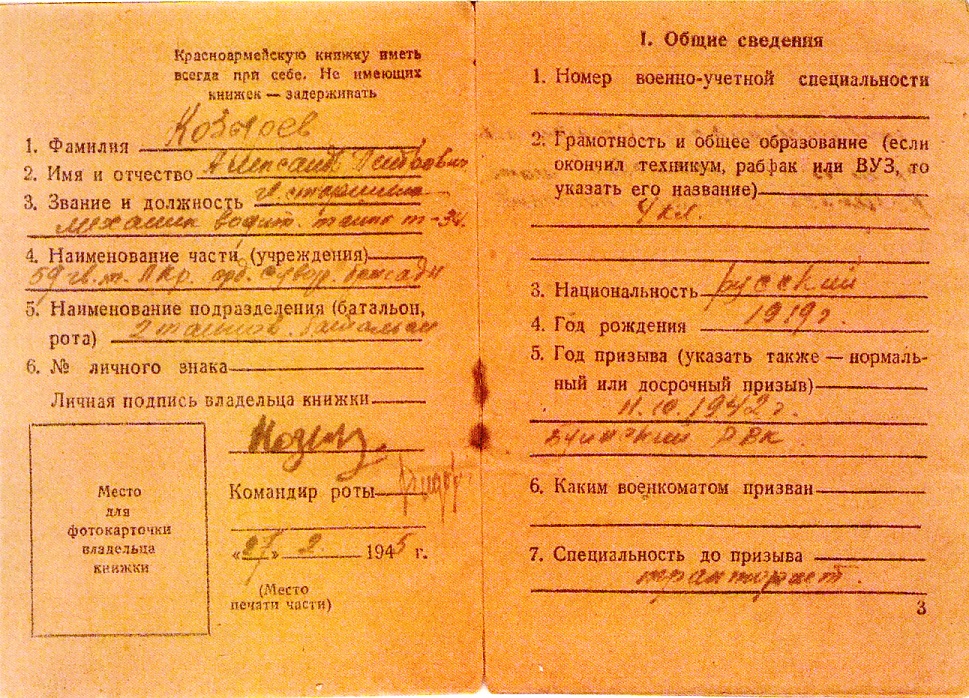 Красноармейскую книжку иметь
всегда при себе. Не имеющих
книжек — задерживать
1. Фамилия Козырев
2. Имя и отчество Александр Петрович
3. Звание и должность гв. старшина
механик водит. танка т-34.
4. Наименование части (учреждения)
59 гв. т. Лкр. орд. Сувор. бригады
5. Наименование подразделения (батальон,
рота) 2 танков. батальон
6. № личного знака
Личная подпись владельца книжки
Командир роты
«27» 2. 1945 г.
(Место
печати части)
Место
для
фотокарточки
владельца
книжки
I. Общие сведения
1. Номер военно-учетной специальности
2. Грамотность и общее образование (если
окончил техникум, рабфак или ВУЗ, то
указать его название)
4 кл.
3. Национальность русский
4. Год рождения 1919 г.
5. Год призыва (указать также — нормаль-
ный или досрочный призыв)
11.10.1942 г.
Буинский РВК
6. Каким военкоматом призван
7. Специальность до призыва
тракторист.
3